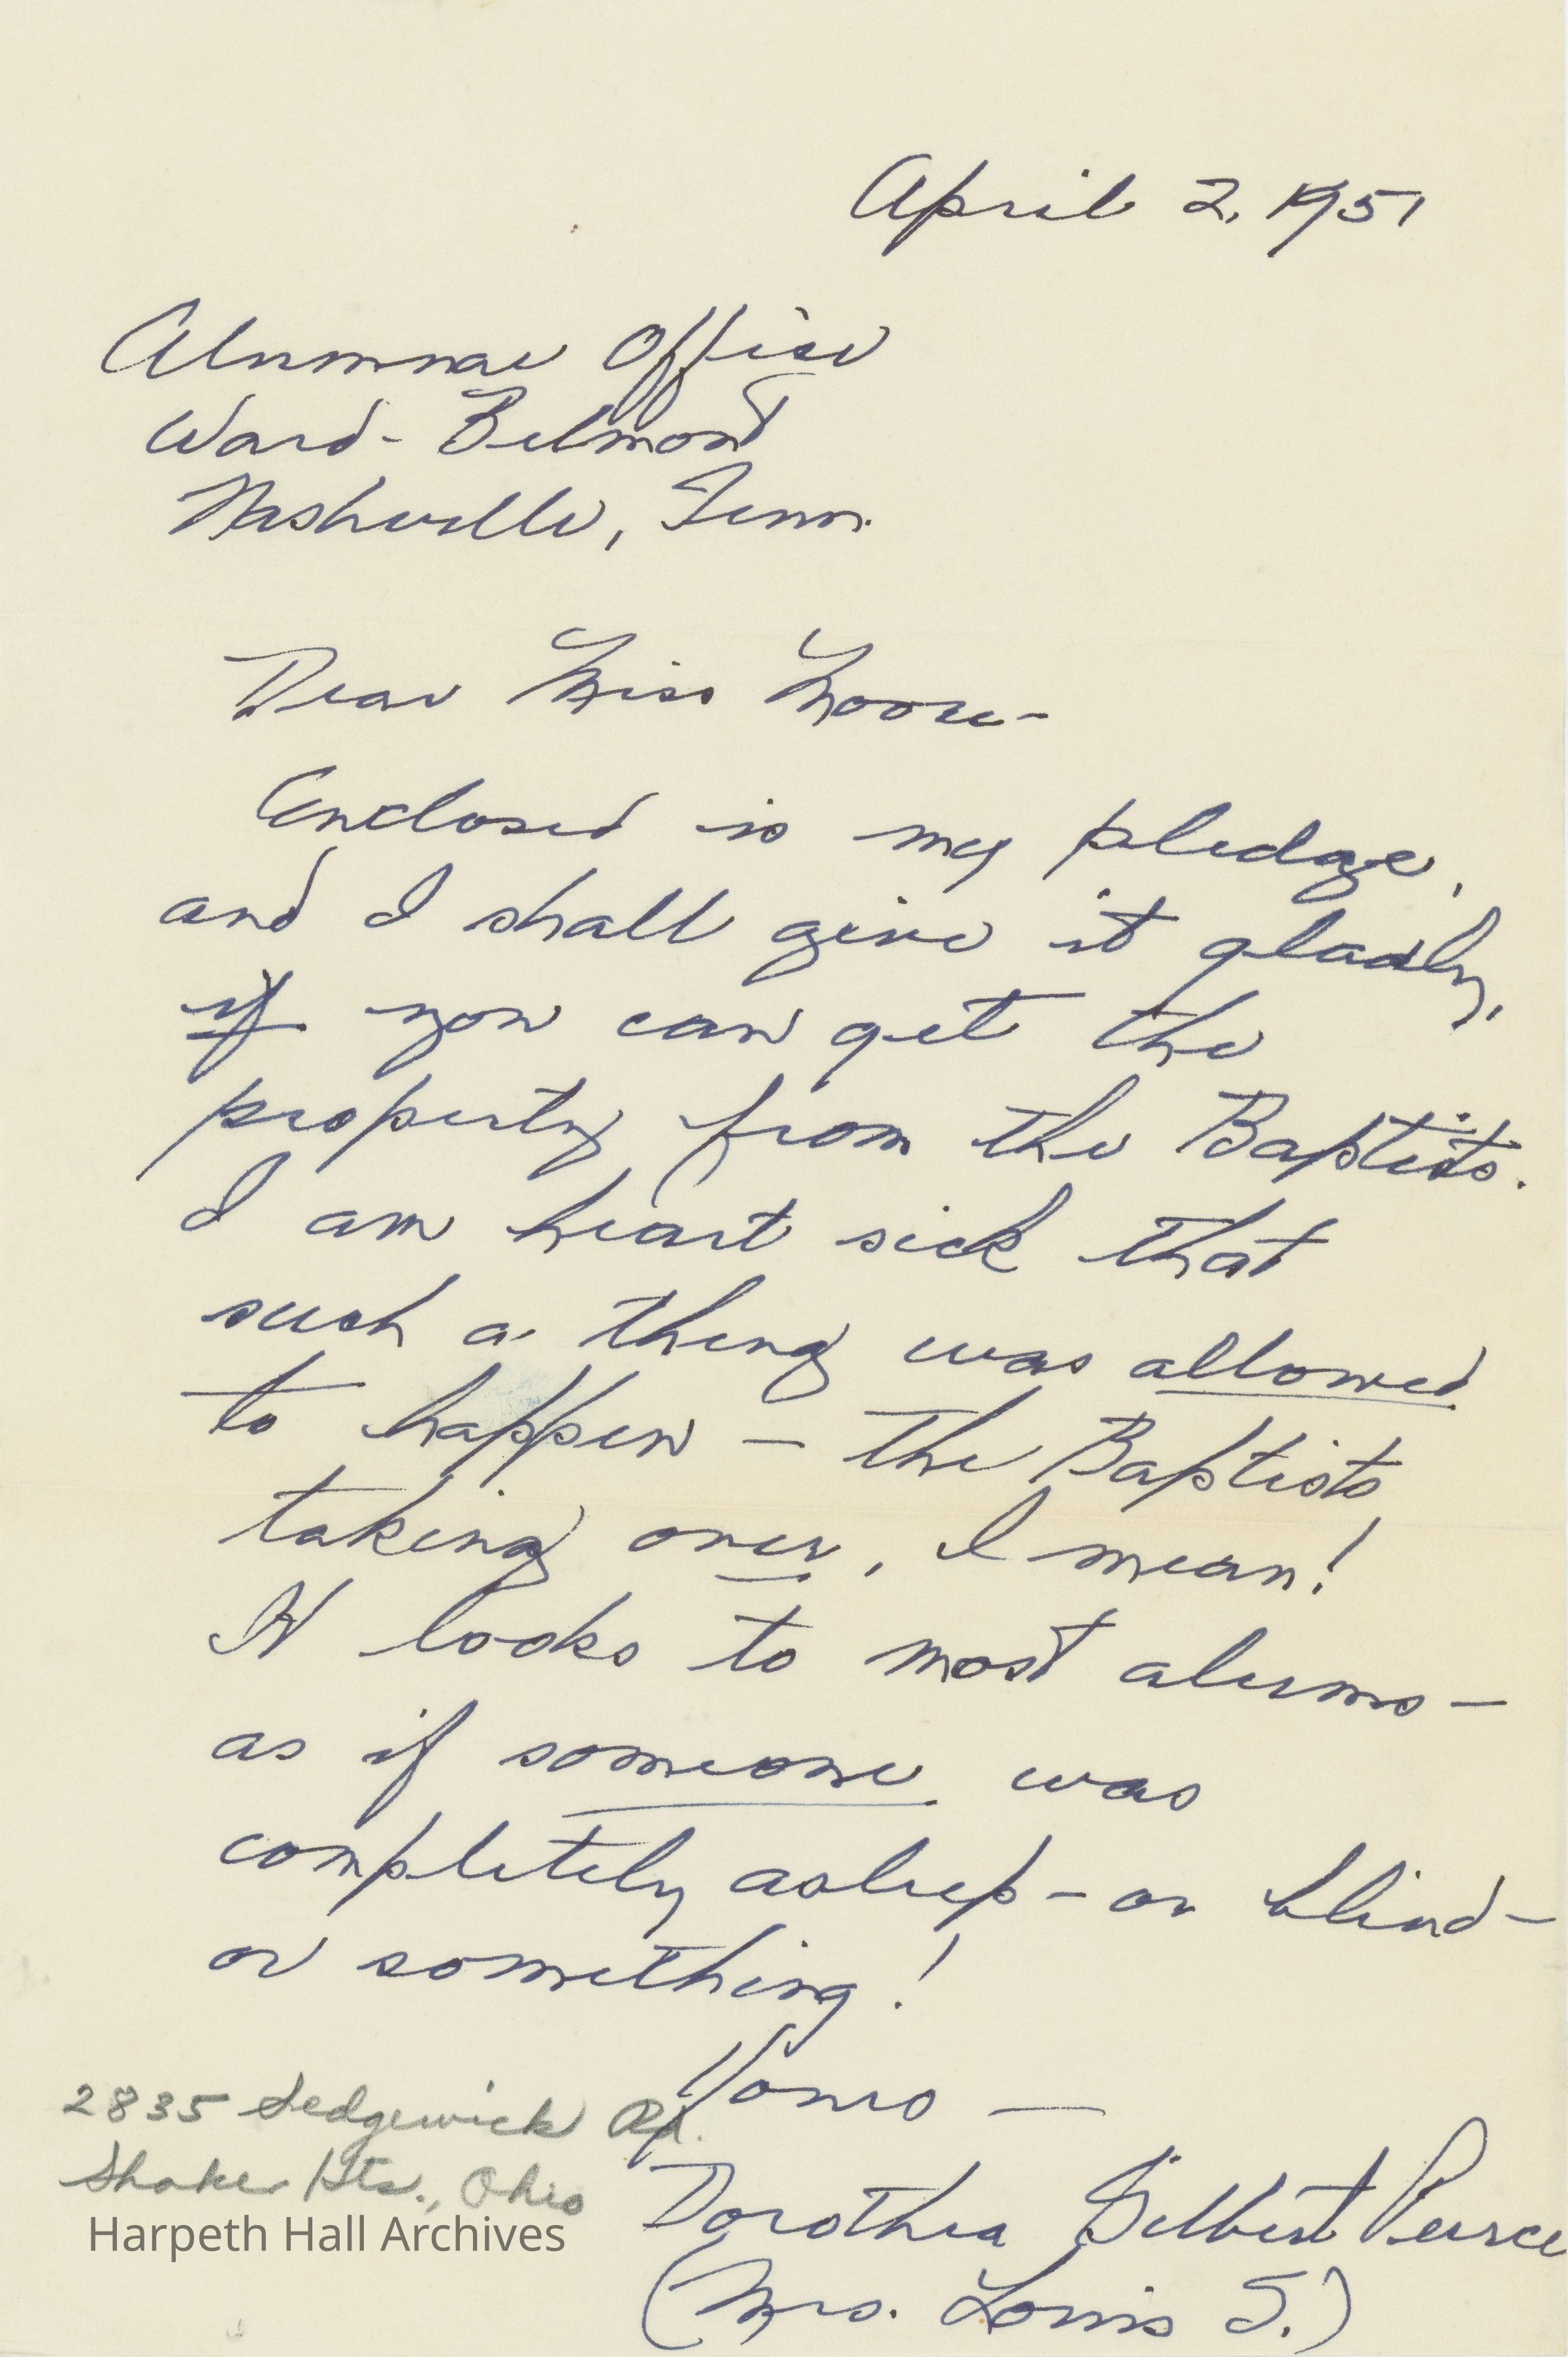 April 2, 1951
Alumnae Office
Ward-Belmont
Nashville, Tenn.
Dear Miss Moore-
Enclosed is my pledge,
and I shall give it gladly,
if you can get the
property from the Baptists.
I am heart sick that
such a thing was allowed
to happen — the Baptists
taking over, I mean!
It looks to most alums —
as if someone was
completely asleep - or blind -
or something!
Yours —
2835 Sedgewick Rd.
Shaker Hts., Ohio
Dorothea Gilbert Peirce
(Mrs. Louis S.)
Harpeth Hall Archives